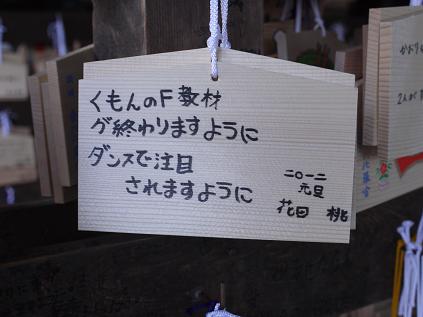 くもんのF教材
が終わりますように
ダンスで注目
されますように
二〇一二
元旦
花田 桃